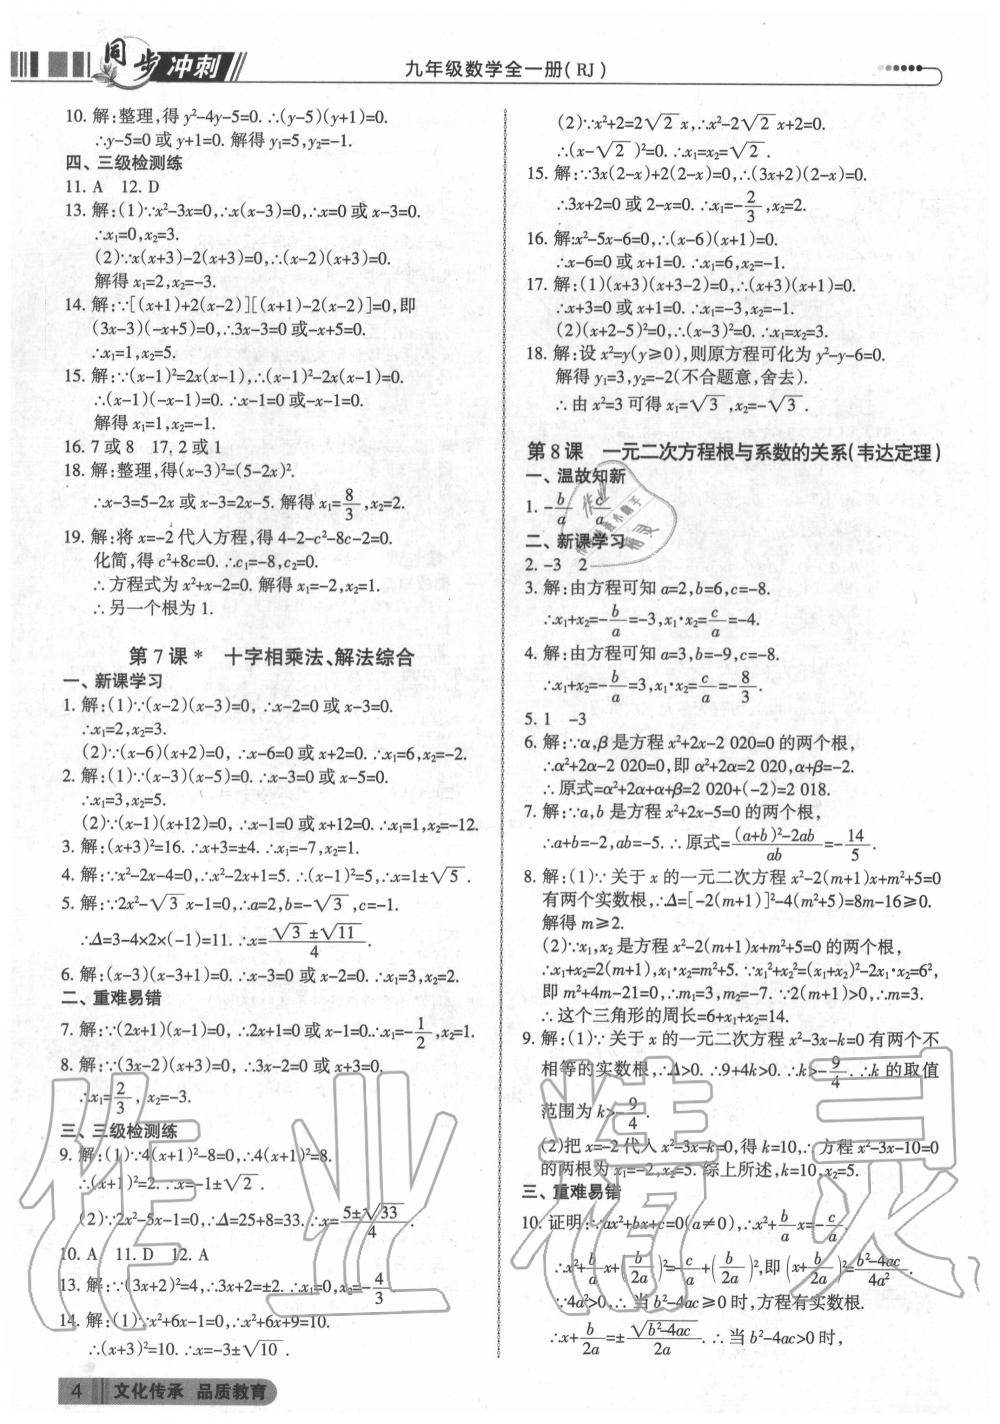 同步冲刺
九年级数学全一册(RJ)
10. 解:整理,得 y²-4y-5=0. ∴(y-5)(y+1)=0.
∴y-5=0 或 y+1=0. 解得 y₁=5,y₂=-1.
四、三级检测练
11. A 12. D
13. 解:(1)∵x²-3x=0,∴x(x-3)=0,∴x=0 或 x-3=0.
∴x₁=0,x₂=3.
(2)∵x(x+3)-2(x+3)=0,∴(x-2)(x+3)=0.
解得 x₁=2,x₂=-3.
14. 解:∵[(x+1)+2(x-2)][(x+1)-2(x-2)]=0,即
(3x-3)(-x+5)=0,∴3x-3=0 或-x+5=0.
∴x₁=1,x₂=5.
15. 解:∵(x-1)²=2x(x-1),∴(x-1)²-2x(x-1)=0.
∴(x-1)(-x-1)=0. ∴x-1=0 或-x-1=0.
解得 x₁=1,x₂=-1.
16. 7 或 8 17. 2 或 1
18. 解:整理,得(x-3)²=(5-2x)².
∴x-3=5-2x 或 x-3=2x-5. 解得 x₁=8/3,x₂=2.
19. 解:将 x=-2 代人方程,得 4-2-c²-8c-2=0.
化简,得 c²+8c=0. ∴c₁=-8,c₂=0.
∴方程式为 x²+x-2=0. 解得 x₁=-2,x₂=1.
∴另一个根为 1.
第 7 课 * 十字相乘法、解法综合
一、新课学习
1. 解:(1)∵(x-2)(x-3)=0, ∴x-2=0 或 x-3=0.
∴x₁=2,x₂=3.
(2)∵(x-6)(x+2)=0, ∴x-6=0 或 x+2=0. ∴x₁=6,x₂=-2.
2. 解:(1)∵(x-3)(x-5)=0. ∴x-3=0 或 x-5=0.
∴x₁=3,x₂=5.
(2)∵(x-1)(x+12)=0, ∴x-1=0 或 x+12=0. ∴x₁=1,x₂=-12.
3. 解:(x+3)²=16. ∴x+3=±4. ∴x₁=-7,x₂=1.
4. 解:∵x²-2x-4=0,∴x²-2x+1=5. ∴(x-1)²=5,∴x=1±√5.
5. 解:∵2x²-√3x-1=0,∴a=2,b=-√3,c=-1.
∴Δ=3-4×2×(-1)=11. ∴x=(√3±√11)/4.
6. 解:(x-3)(x-3+1)=0. ∴x-3=0 或 x-2=0. ∴x₁=3,x₂=2.
二、重难易错
7. 解:∵(2x+1)(x-1)=0, ∴2x+1=0 或 x-1=0.∴x₁=-1/2,x₂=1.
8. 解:∵(3x-2)(x+3)=0, ∴3x-2=0 或 x+3=0.
∴x₁=2/3, x₂=-3.
三、三级检测练
9. 解:(1)∵4(x+1)²-8=0,∴4(x+1)²=8.
∴(x+1)²=2. ∴x=-1±√2.
(2)∵2x²-5x-1=0,∴Δ=25+8=33. ∴x=(5±√33)/4.
10. A 11. D 12. A
13. 解:∵(3x+2)²=4,∴3x+2=±2. ∴x₁=0,x₂=-4/3.
14. 解:(1)∵x²+6x-1=0,∴x²+6x+9=10.
∴(x+3)²=10. ∴x=-3±√10.
(2)∵x²+2=2√2x,∴x²-2√2x+2=0.
∴(x-√2)²=0. ∴x₁=x₂=√2.
15. 解:∵3x(2-x)+2(2-x)=0,∴(3x+2)(2-x)=0.
∴3x+2=0 或 2-x=0. ∴x₁=-2/3,x₂=2.
16. 解:x²-5x-6=0,∴(x-6)(x+1)=0.
∴x-6=0 或 x+1=0. ∴x₁=6,x₂=-1.
17. 解:(1)(x+3)(x+3-2)=0,∴(x+3)(x+1)=0.
∴x+3=0 或 x+1=0. ∴x₁=-3,x₂=-1.
(2)(x+2-5)²=0,∴(x-3)²=0. ∴x₁=x₂=3.
18. 解:设 x²=y(y≥0),则原方程可化为 y²-y-6=0.
解得 y₁=3,y₂=-2(不合题意,舍去).
∴由 x²=3 可得 x₁=√3,x₂=-√3.
第 8 课 一元二次方程根与系数的关系(韦达定理)
一、温故知新
1. -b/a c/a
二、新课学习
2. -3 2
3. 解:由方程可知 a=2,b=6,c=-8.
∴x₁+x₂=-b/a=-3,x₁·x₂=c/a=-4.
4. 解:由方程可知 a=3,b=-9,c=-8.
∴x₁+x₂=-b/a=3,x₁·x₂=c/a=-8/3.
5. 1 -3
6. 解:∵α,β 是方程 x²+2x-2 020=0 的两个根,
∴α²+2α-2 020=0,即 α²+2α=2 020,α+β=-2.
∴原式=α²+2α+α+β=2 020+(-2)=2 018.
7. 解:∵a,b 是方程 x²+2x-5=0 的两个根,
∴a+b=-2,ab=-5. ∴原式=((a+b)²-2ab)/ab=-14/5.
8. 解:(1)∵关于 x 的一元二次方程 x²-2(m+1)x+m²+5=0
有两个实数根,∴Δ=[-2(m+1)]²-4(m²+5)=8m-16≥0.
解得 m≥2.
(2)∵x₁,x₂ 是方程 x²-2(m+1)x+m²+5=0 的两个根,
∴x₁+x₂=2(m+1),x₁·x₂=m²+5. ∵x₁²+x₂²=(x₁+x₂)²-2x₁·x₂=6²,
即 m²+4m-21=0,∴m₁=3,m₂=-7. ∵2(m+1)>0,∴m=3.
∴这个三角形的周长=6+x₁+x₂=14.
9. 解:(1)∵关于 x 的一元二次方程 x²-3x-k=0 有两个不
相等的实数根,∴Δ>0. ∴9+4k>0. ∴k>-9/4. ∴k 的取值
范围为 k>-9/4.
(2)把 x=-2 代人 x²-3x-k=0,得 k=10,∴方程 x²-3x-10=0
的两根为 x₁=-2,x₂=5. 综上所述,k=10,x₂=5.
三、重难易错
10. 证明:∵ax²+bx+c=0(a≠0),∴x²+b/a x=-c/a.
∴x²+b/a x+(b/2a)²=-c/a+(b/2a)²,即(x+b/2a)²=(b²-4ac)/4a².
∵4a²>0,∴当 b²-4ac≥0 时,方程有实数根.
∴x+b/2a=±√(b²-4ac)/2a. ∴当 b²-4ac>0 时,
4 文化传承 品质教育
作业精灵